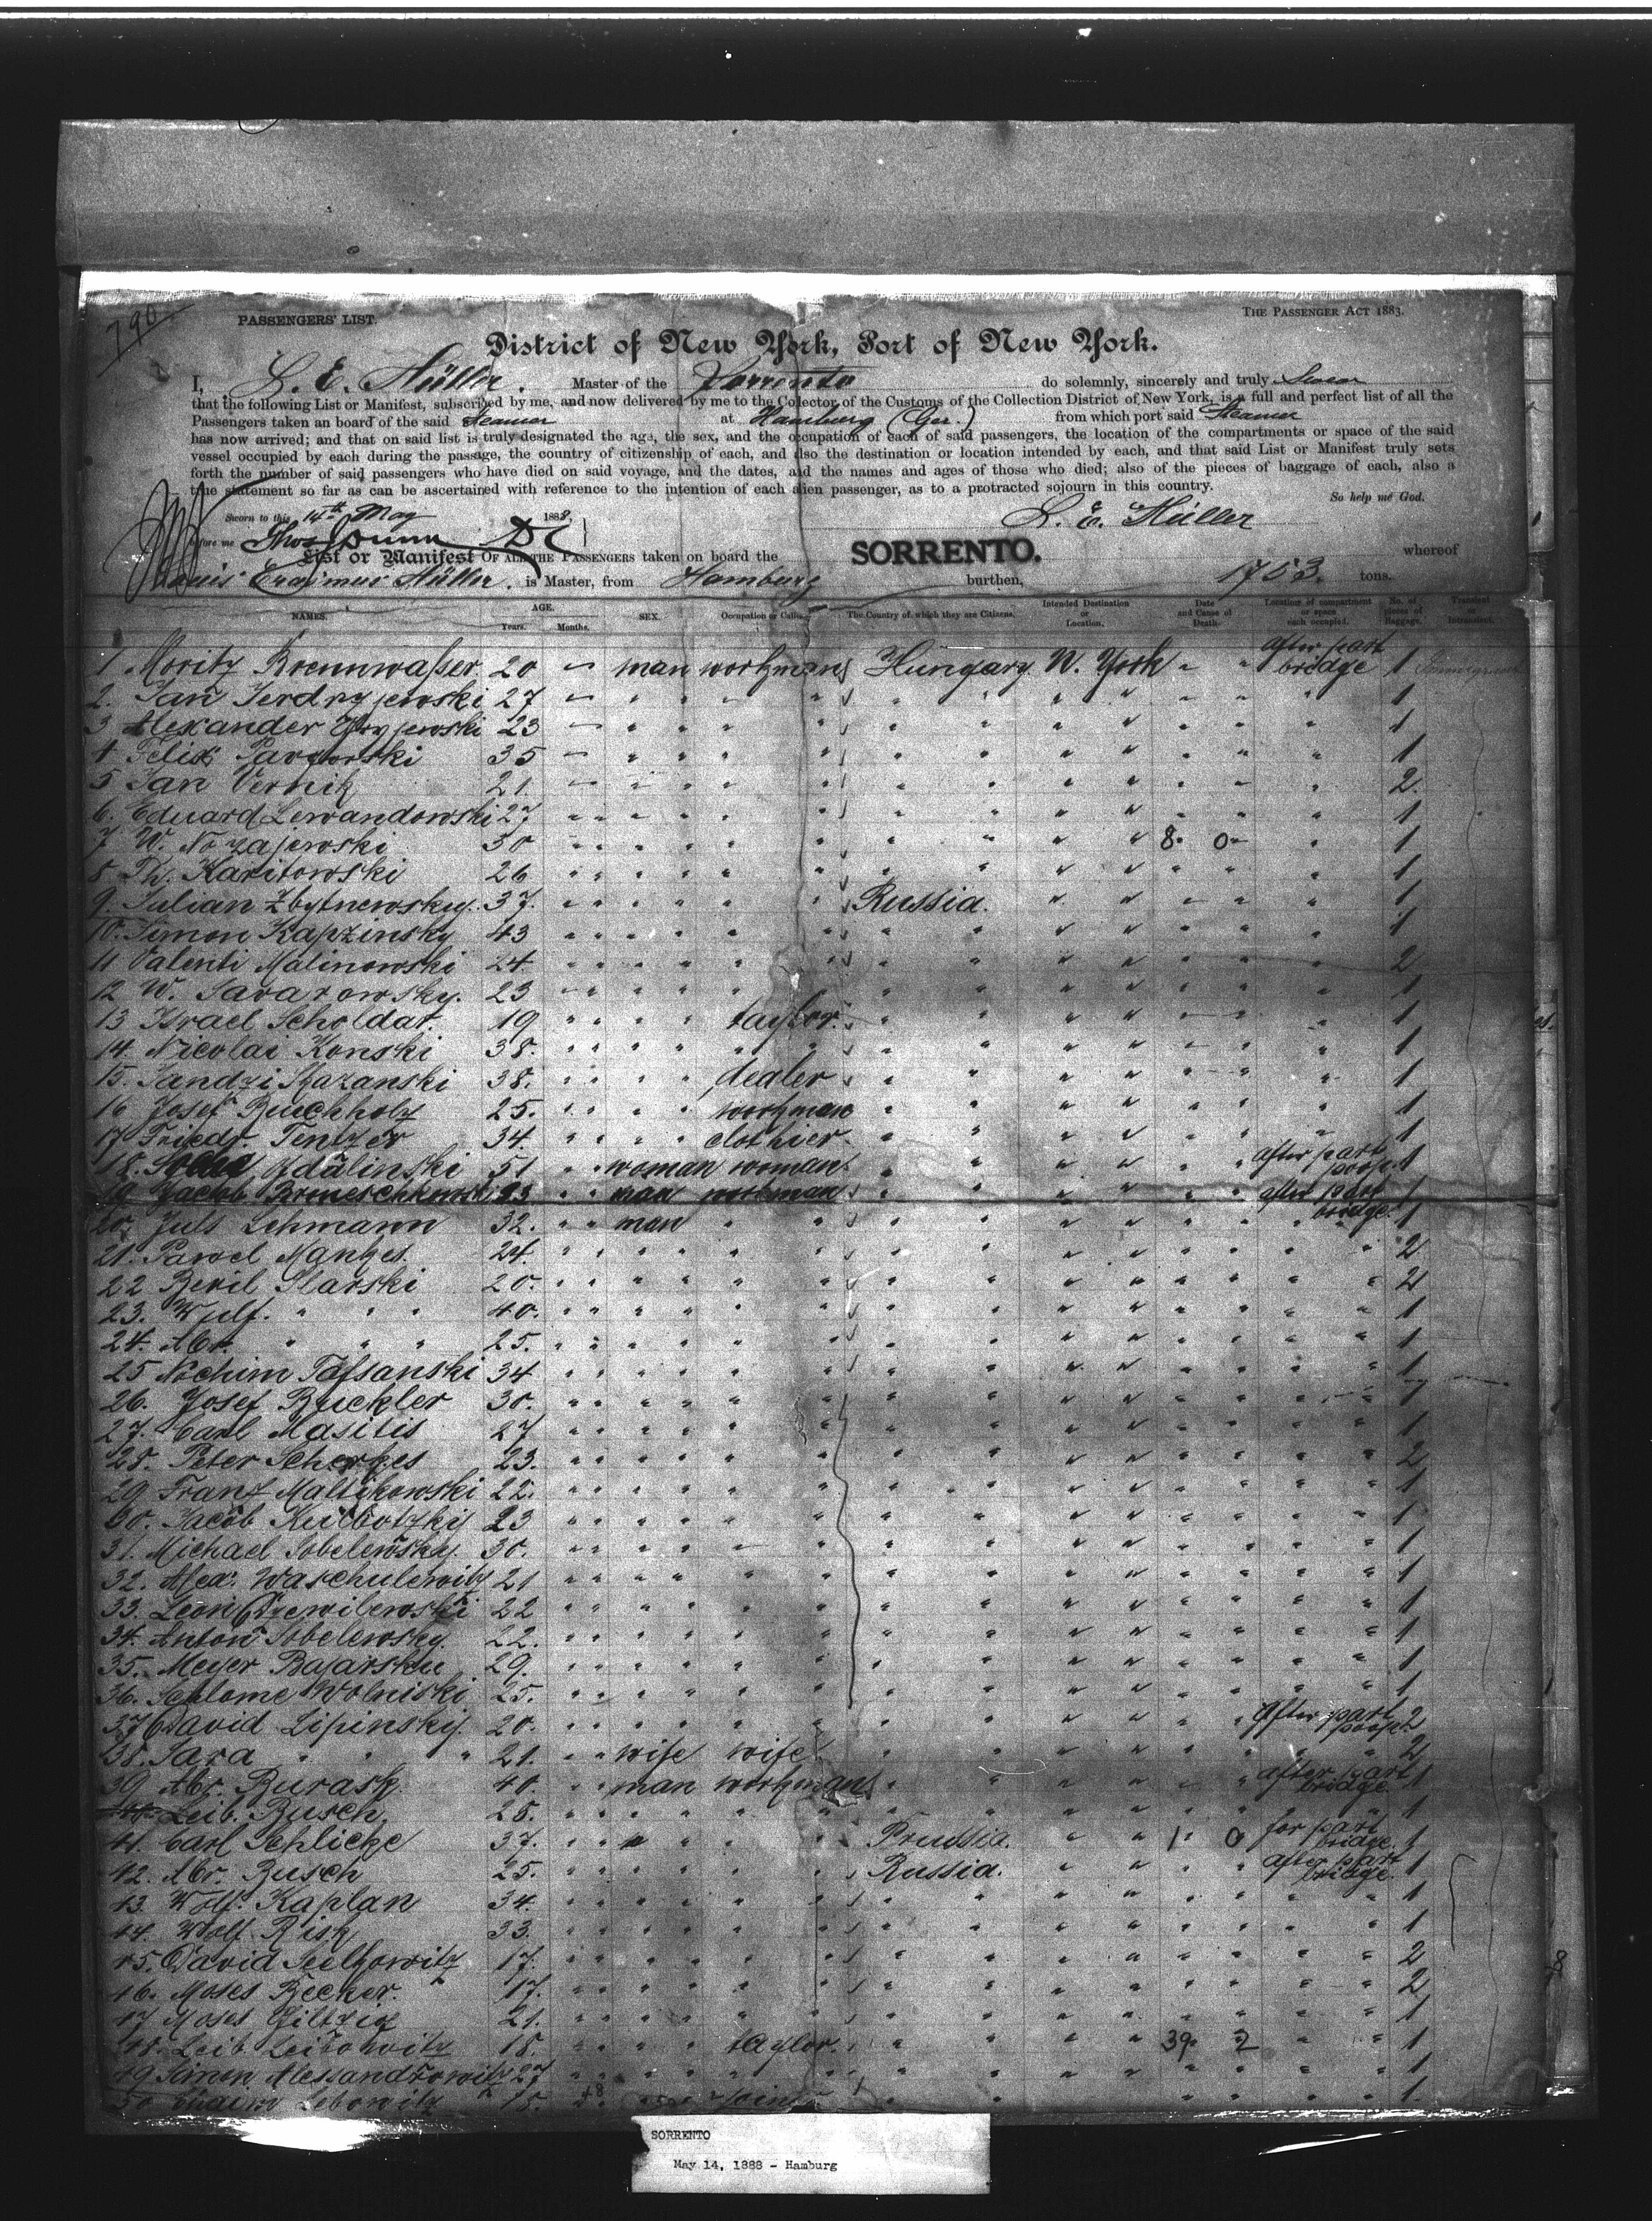 790
PASSENGERS' LIST.
THE PASSENGER ACT 1883.
District of New York, Port of New York.
I, L. E. Müller. Master of the Sorrento do solemnly, sincerely and truly Swear
that the following List or Manifest, subscribed by me, and now delivered by me to the Collector of the Customs of the Collection District of New York, is a full and perfect list of all the
Passengers taken an board of the said Steamer at Hamburg (Ger.) from which port said Steamer
has now arrived; and that on said list is truly designated the age, the sex, and the occupation of each of said passengers, the location of the compartments or space of the said
vessel occupied by each during the passage, the country of citizenship of each, and also the destination or location intended by each, and that said List or Manifest truly sets
forth the number of said passengers who have died on said voyage, and the dates, and the names and ages of those who died; also of the pieces of baggage of each, also a
true statement so far as can be ascertained with reference to the intention of each alien passenger, as to a protracted sojourn in this country.
So help me God.
Sworn to this 14th May 1888.
L. E. Müller
before me
List or Manifest OF ALL THE PASSENGERS taken on board the SORRENTO. whereof
Erasmus Müller. is Master, from Hamburg burthen, 1753. tons.
NAMES. AGE. Years. Months. SEX. Occupation or Calling The Country of which they are Citizens. Intended Destination or Location. Date and Cause of Death Location of compartment or space each occupied. No. of pieces of Baggage. Transient or Intransient.
1 Moritz Brennwasser. 20 man workman Hungary. N. York after part bridge 1
2. Jan 27 " " " " 1
3 Alexander 23 " " " " 1
4 Felix 35 " " " " 1
5 Jan Vernik 21 " " " " 2.
6. Eduard Lewandowski 27 " " " " 1
7 W. Nozajewski 30 " " " " 8. 0 1
8 Th. Karitowski 26 " " " " 1
9. Julian Zbytnewsky. 37. " " Russia. " 1
10. Simon Kapzinsky 43 " " " " 1
11 Valenti Malinowski 24. " " " " 2
12 W. Savarowsky. 23 " " " " 1
13 Israel Scholdat. 19 " taylor. " " 1
14. Nicolai Konski 38. " " " " 1
15. Jandzi Skazanski 38. " dealer " " 1
16 Josef Buchholz 25. " workman " " 1
17 Friedr. Tentzer 34. " clothier. " " 1
18. 51 woman woman. " " after part poop. 1
19 Jacob 23 man workman " " after part bridge. 1
20. Juls Lehmann 32. man " " " 1
21. Pawel Mankes. 24. " " " " 2
22 Beril Slarski 20. " " " " 2
23. Wulf. " 40. " " " " 1
24. Abr. " 25. " " " " 1
25 Nochim Tafsanski 34 " " " " 1
26. Josef Buckler 30. " " " " 1
27. Carl Masitis 27 " " " " 1
28. Peter Scherkes 23. " " " " 2
29. Franz Maltikowski 22. " " " " 1
30. Jacob 23 " " " " 1
31. Michael Sobelewsky. 30. " " " " 1
32. Alex. Waschulewitz 21 " " " " 1
33. Leon 22 " " " " 1
34. Anton Sobelewsky. 22. " " " " 1
35. Meyer 29. " " " " 1
36. Schlome Wolniski 25. " " " " 1
37 David Lipinsky. 20. " " " " After part poop 2
38. Sara " 21. wife wife " " 2
39 Abr. Burask. 40. man workman " " after part bridge 1
Leib. Busch 28. " " " " 1
41. Carl Schlicke 37. " " Prussia. " 1. 0 for part bridge. 1
42. Abr. Busch 25. " " Russia. " after part bridge. 1
43. Wolf. Kaplan 34. " " " " 1
44. Wolf. Risk 33. " " " " 1
45. David 17. " " " " 2
46. Moses Becker. 17. " " " " 2
47 Moses 21. " " " " 1
48. Leib Leibowitz 18. " taylor. " " 39. 2 1
49 Simon Alessandrowitz 27 " " " " 1
50 Chaim Lebowitz 15. " 1
SORRENTO
May 14, 1888 - Hamburg